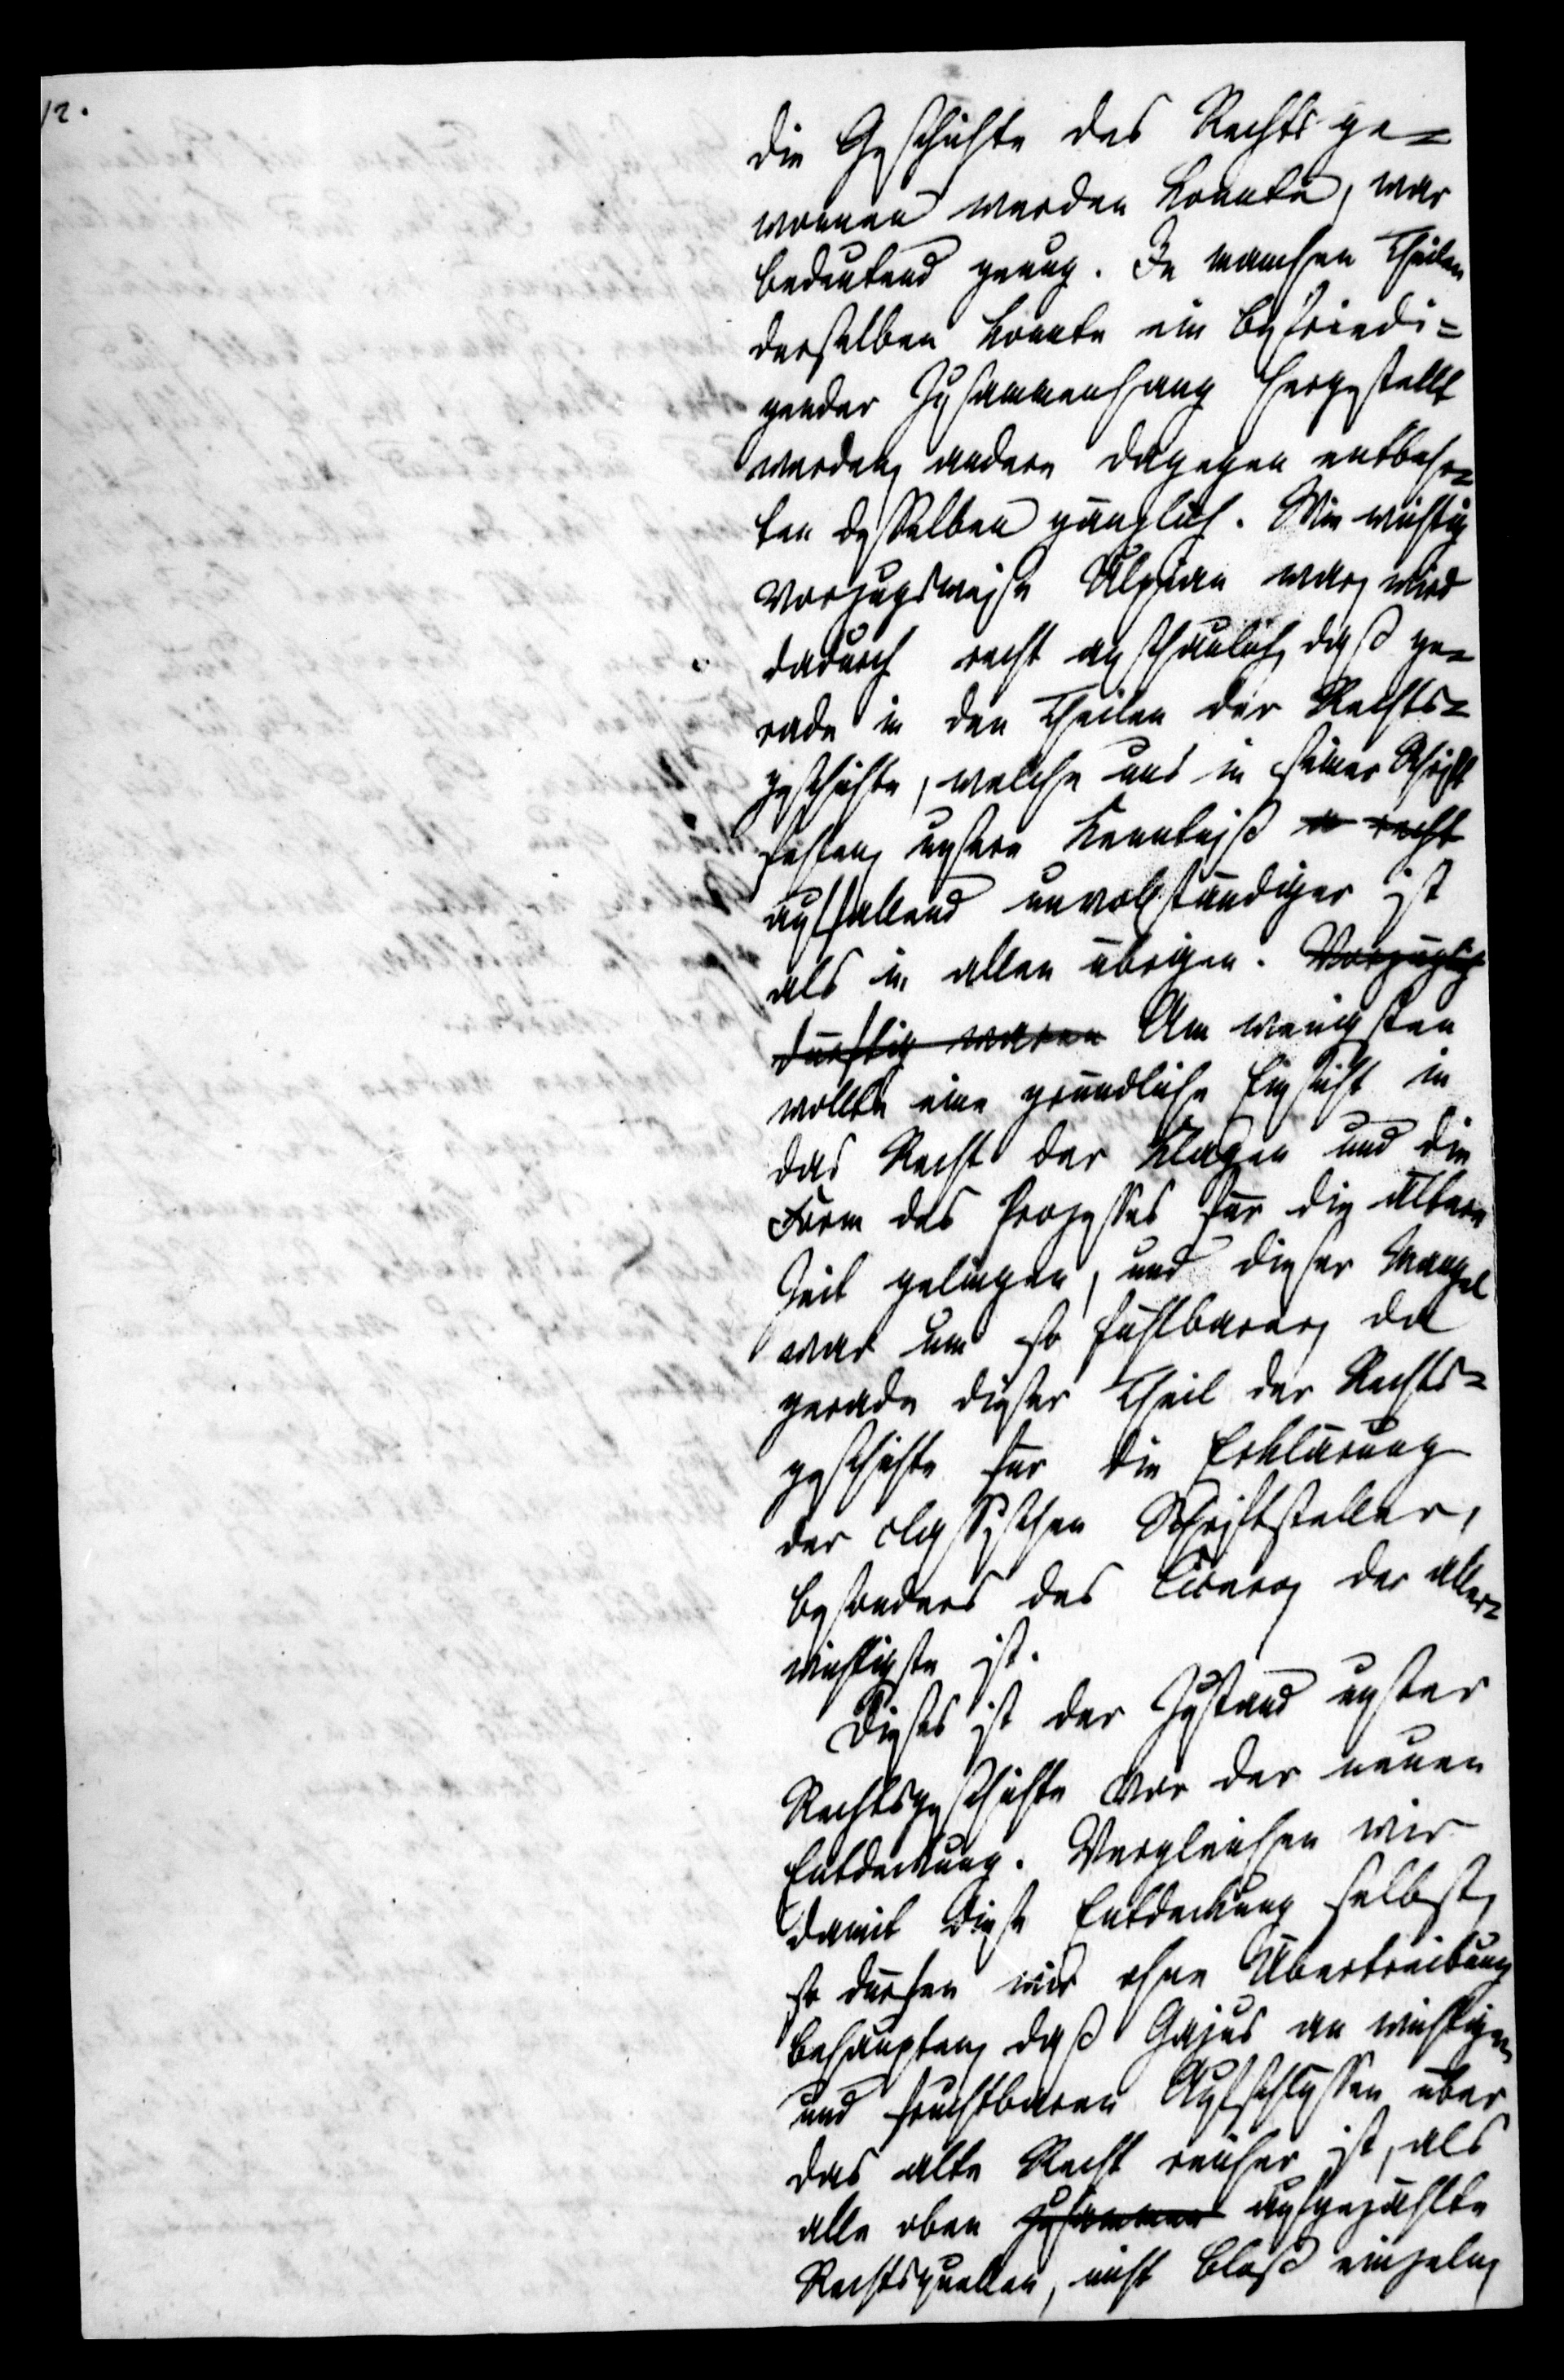 12.
die Geschichte des Rechts ge=
wonnen werden konnte, war
bedeutend genug. In manchen Theilen
derselben konnte ein befriedi=
gender Zusammenhang hergestellt
werden, andere dagegen entbehr=
ten desselben gänzlich. Wie wichtig
vorzugsweise Ulpian war, wird
dadurch recht anschaulich, daß ge=
rade in den Theilen der Rechts=
geschichte, welche uns in seiner Schrift
fehlen, unsere Kenntniß recht
auffallend unvollständiger ist
als in allen übrigen. Vorzüglich
dürftig waren Am wenigsten
wollte eine gründliche Einsicht in
das Recht der Klagen und die
Form des Prozesses für die ältere
Zeit gelingen, und dieser Mangel
war um so fühlbarer, da
gerade dieser Theil der Rechts=
geschichte für die Erklärung
der classischen Schriftsteller,
besonders des Cicero, der aller=
wichtigste ist.
Dieses ist der Zustand unsrer
Rechtsgeschichte vor der neuen
Entdeckung. Vergleichen wir
damit diese Entdeckung selbst,
so dürfen wir ohne Übertreibung
behaupten, daß Gajus an wichtigen
und fruchtbaren Aufschlüssen über
das alte Recht reicher ist, als
alle oben zusammen aufgezählte
Rechtsquellen, nicht bloß einzeln,